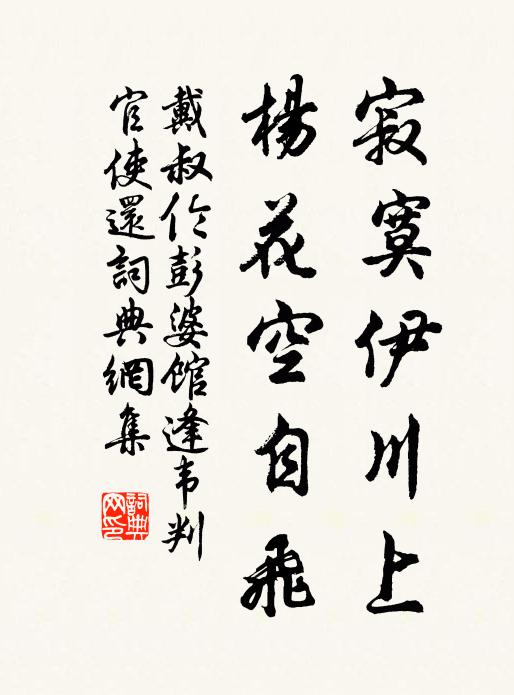 寂寞伊川上
楊花空自飛
戴叔伦彭婆館逢韦判
官使還詞典網集
詞典網印